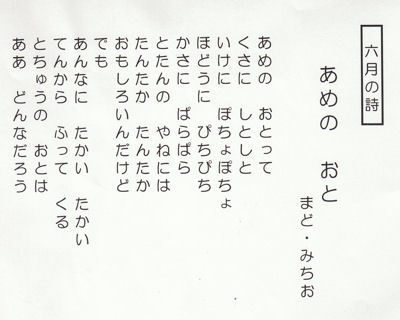 六月の詩
あめの　おと
まど・みちお
あめの　おとって
くさに　しとしと
いけに　ぽちょぽちょ
ほどうに　ぴちぴち
かさに　ぱらぱら
とたんの　やねには
たんたか　たんたか
おもしろいんだけど
でも
あんなに　たかい　たかい
てんから　ふって　くる
とちゅうの　おとは
ああ　どんなだろう